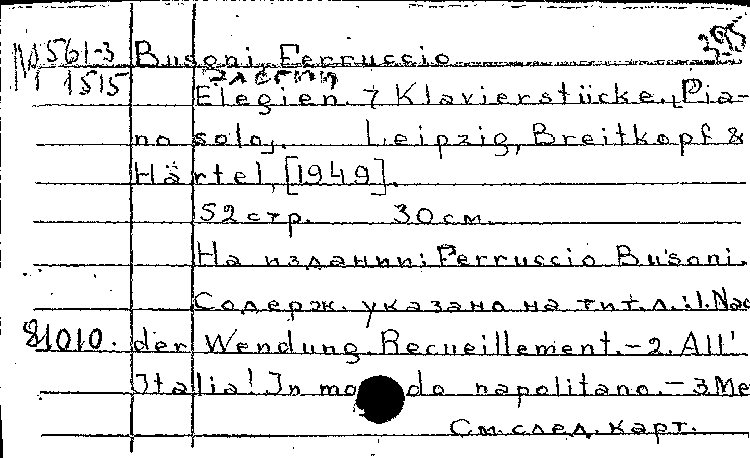 М 561-3 Busoni, Ferruccio 395
1 1515 Элегии
Elegien. 7 Klavierstücke. [Pia-
no solo]. Leipzig, Breitkopf &
Härtel, [1949].
52 стр. 30 см.
На издании: Ferruccio Busoni.
Содерж. указано на тит. л.: 1. Nac
81010. der Wendung. Recueillement. – 2. All'
Italia! In modo napolitano. – 3. Me
См. след. карт.